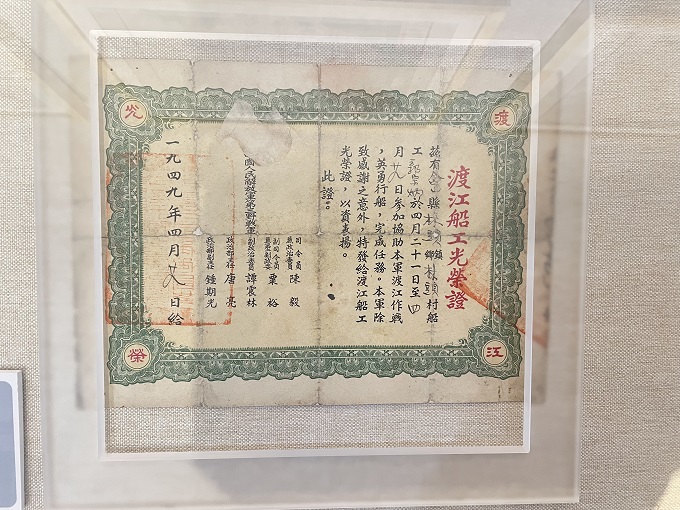 渡江光榮
渡江船工光榮證
茲有含山縣林頭鎮鄉林頭村船
工於四月二十一日至四
月日參加協助本軍渡江作戰
，英勇行船，完成任務。本軍除
致感謝之意外，特發給渡江船工
光榮證，以資表揚。
此證。
國人民解放軍第三野戰軍
司令員兼政治委員 陳毅
副司令員 粟裕
副政治委員 譚震林
政治部主任 唐亮
政治部副主任 鍾期光
一九四九年四月日給